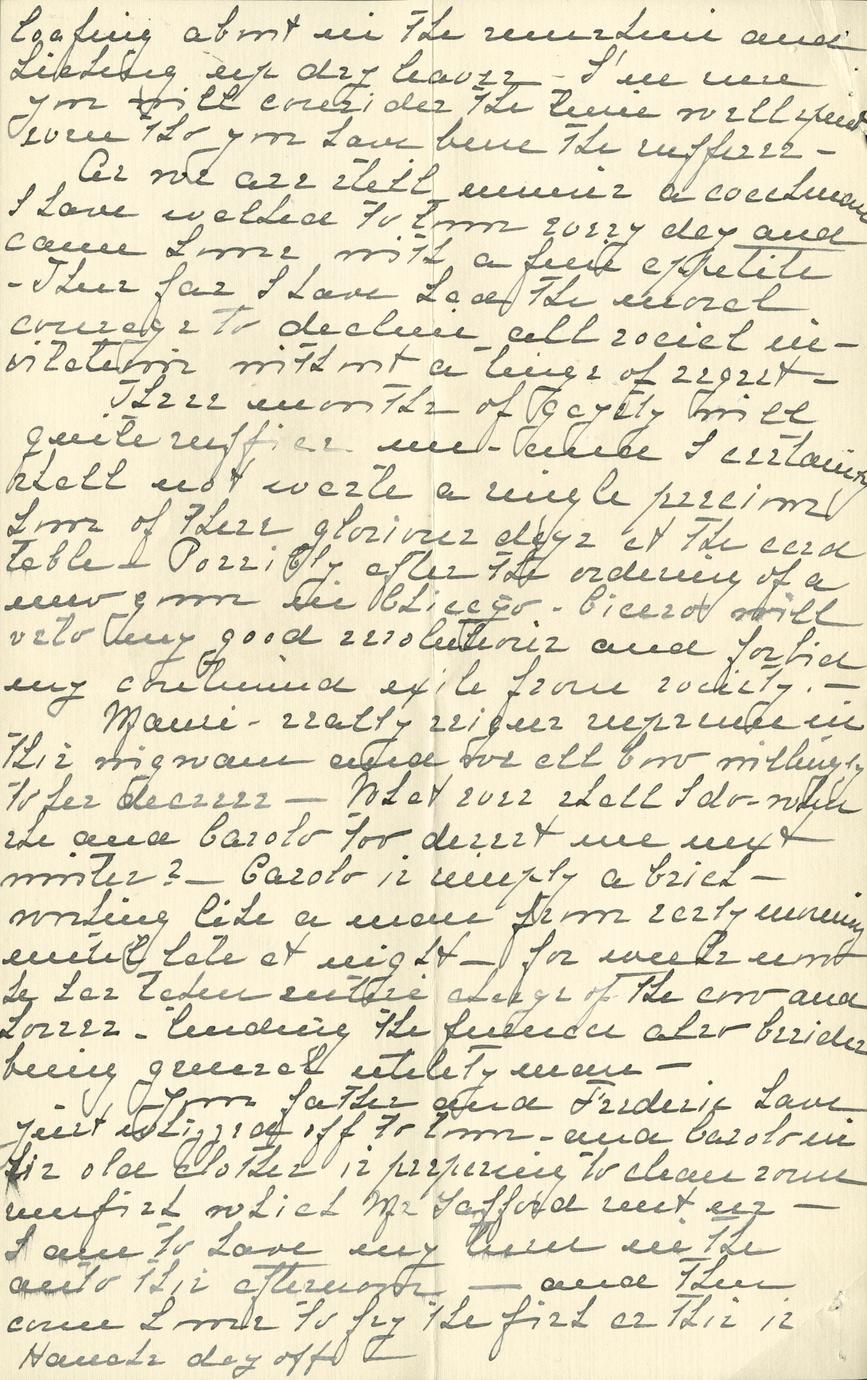 loafing about in the sunshine and
kicking up dry leaves - I'm sure
you will consider the time well spent
even tho you have been the sufferer -
As we are still minus a coachman
I have walked to town every day and
came home with a fine appetite
- Thus far I have had the moral
courage to decline all social in-
vitations without a tinge of regret -
These months of gayety will
quite suffice me - and I certainly
shall not waste a single precious
hour of these glorious days at the card
table - Possibly after the ordering of a
new gown in Chicago - Cicero will
veto my good resolutions and forbid
my continued exile from society. -
Mami - really reigns supreme in
this wigwam and we all bow willingly
to her decrees - What ever shall I do - when
she and Carolo too desert me next
winter? - Carolo is simply a brick -
working like a man from early morning
until late at night - for weeks now
he has taken entire charge of the cow and
horses - tending the furnace also besides
being general utility man -
Your father and Frederic have
just whizzed off to town - and Carolo in
his old clothes is preparing to clean some
sunfish which Mr Safford sent us -
I am to have my turn in the
auto this afternoon - and then
come home to fry the fish as this is
Hannah's day off -